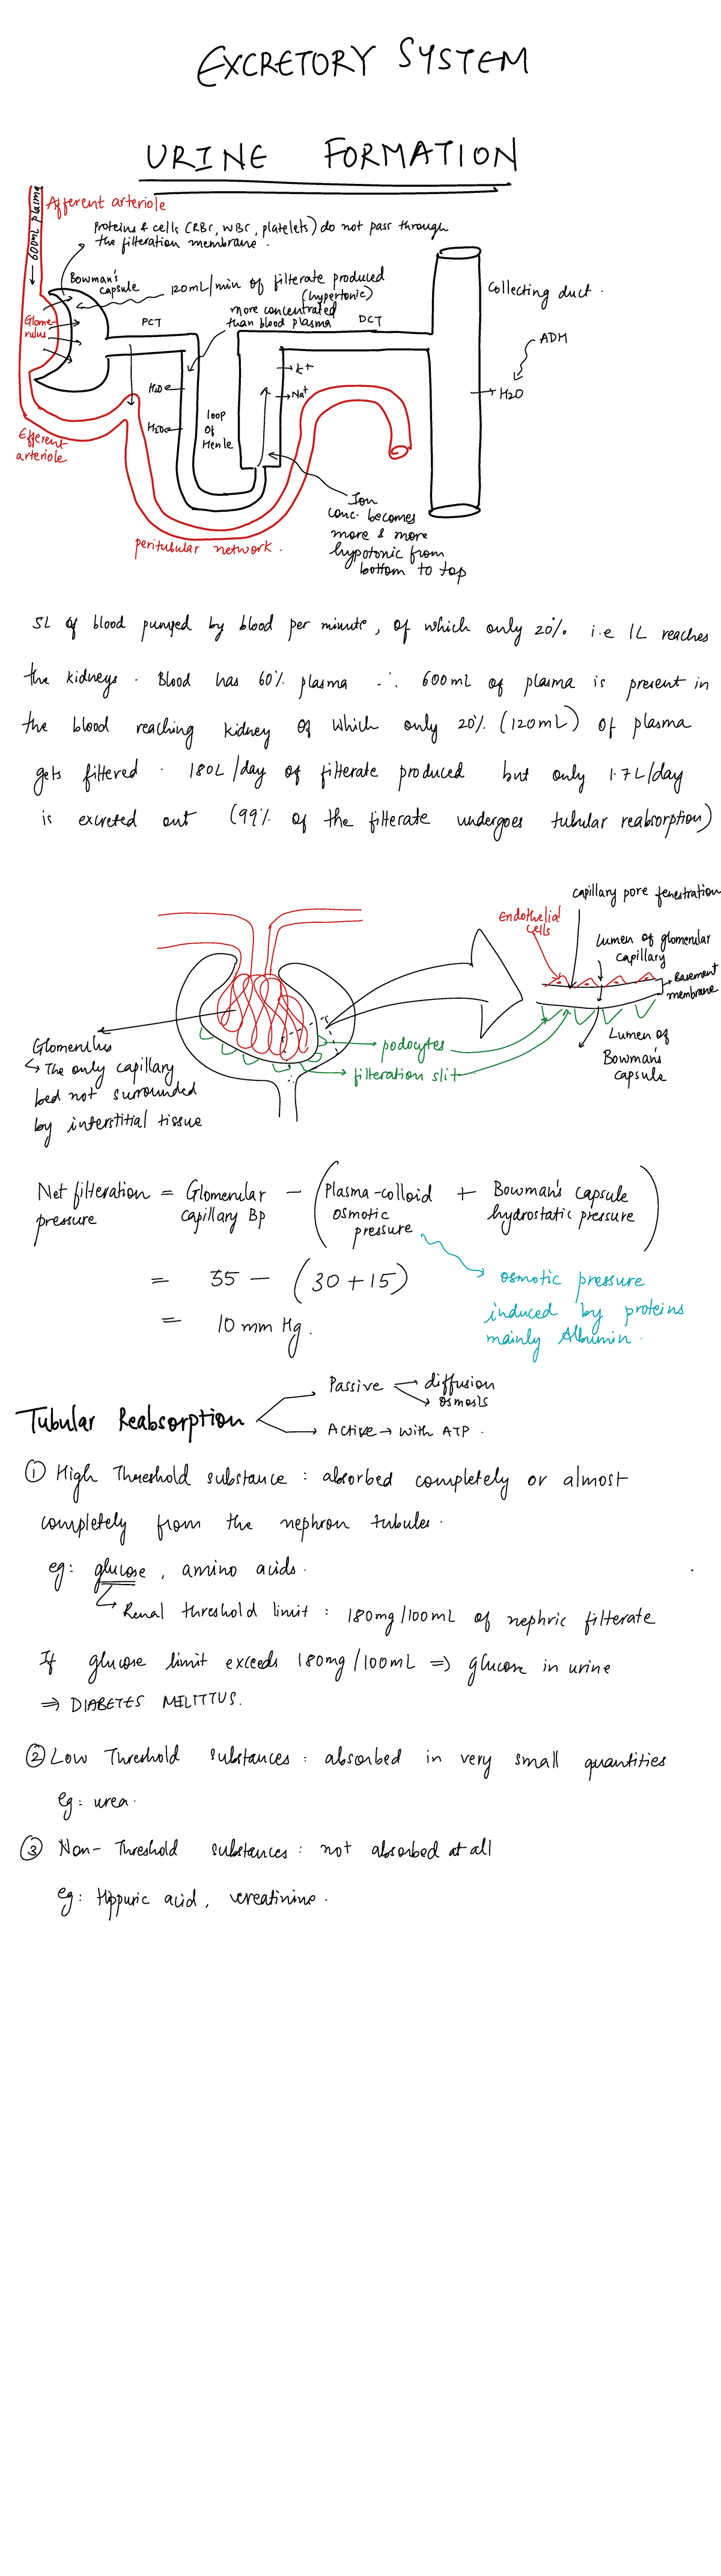 EXCRETORY SYSTEM
URINE FORMATION
Afferent arteriole
← 600mL plasma
Proteins & cells (RBC, WBC, platelets) do not pass through
the filteration membrane.
Bowman's
capsule
120mL/min of filterate produced
(hypertonic)
more concentrated
than blood plasma
Glome-
rulus
PCT
DCT
Collecting duct.
ADH
K+
Na+
H2O
H2O
H2O
loop
of
Henle
Efferent
arteriole
Ion
conc. becomes
more & more
hypotonic from
bottom to top
peritubular network.
5L of blood pumped by blood per minute, of which only 20% i.e 1L reaches
the kidneys. Blood has 60% plasma ∴ 600mL of plasma is present in
the blood reaching kidney of which only 20% (120mL) of plasma
gets filtered. 180L/day of filterate produced but only 1.7L/day
is excreted out (99% of the filterate undergoes tubular reabsorption)
capillary pore fenestration
Endothelial
cells
lumen of glomerular
capillary
Basement
membrane
Glomerulus
↳ The only capillary
bed not surrounded
by interstitial tissue
podocytes
filteration slit
Lumen of
Bowman's
capsule
Net filteration = Glomerular - (Plasma-colloid + Bowman's capsule)
pressure capillary BP osmotic hydrostatic pressure
pressure
= 55 - (30+15)
= 10 mm Hg.
osmotic pressure
induced by proteins
mainly Albumin.
Tubular Reabsorption
Passive → diffusion
→ osmosis
Active → with ATP.
① High Threshold substance : absorbed completely or almost
completely from the nephron tubules.
eg: glucose, amino acids.
↳ Renal threshold limit : 180mg/100mL of nephric filterate
If glucose limit exceeds 180mg/100mL ⇒ glucose in urine
⇒ DIABETES MELITTUS.
② Low Threshold substances : absorbed in very small quantities
eg: urea.
③ Non-Threshold substances : not absorbed at all
eg: Hippuric acid, creatinine.